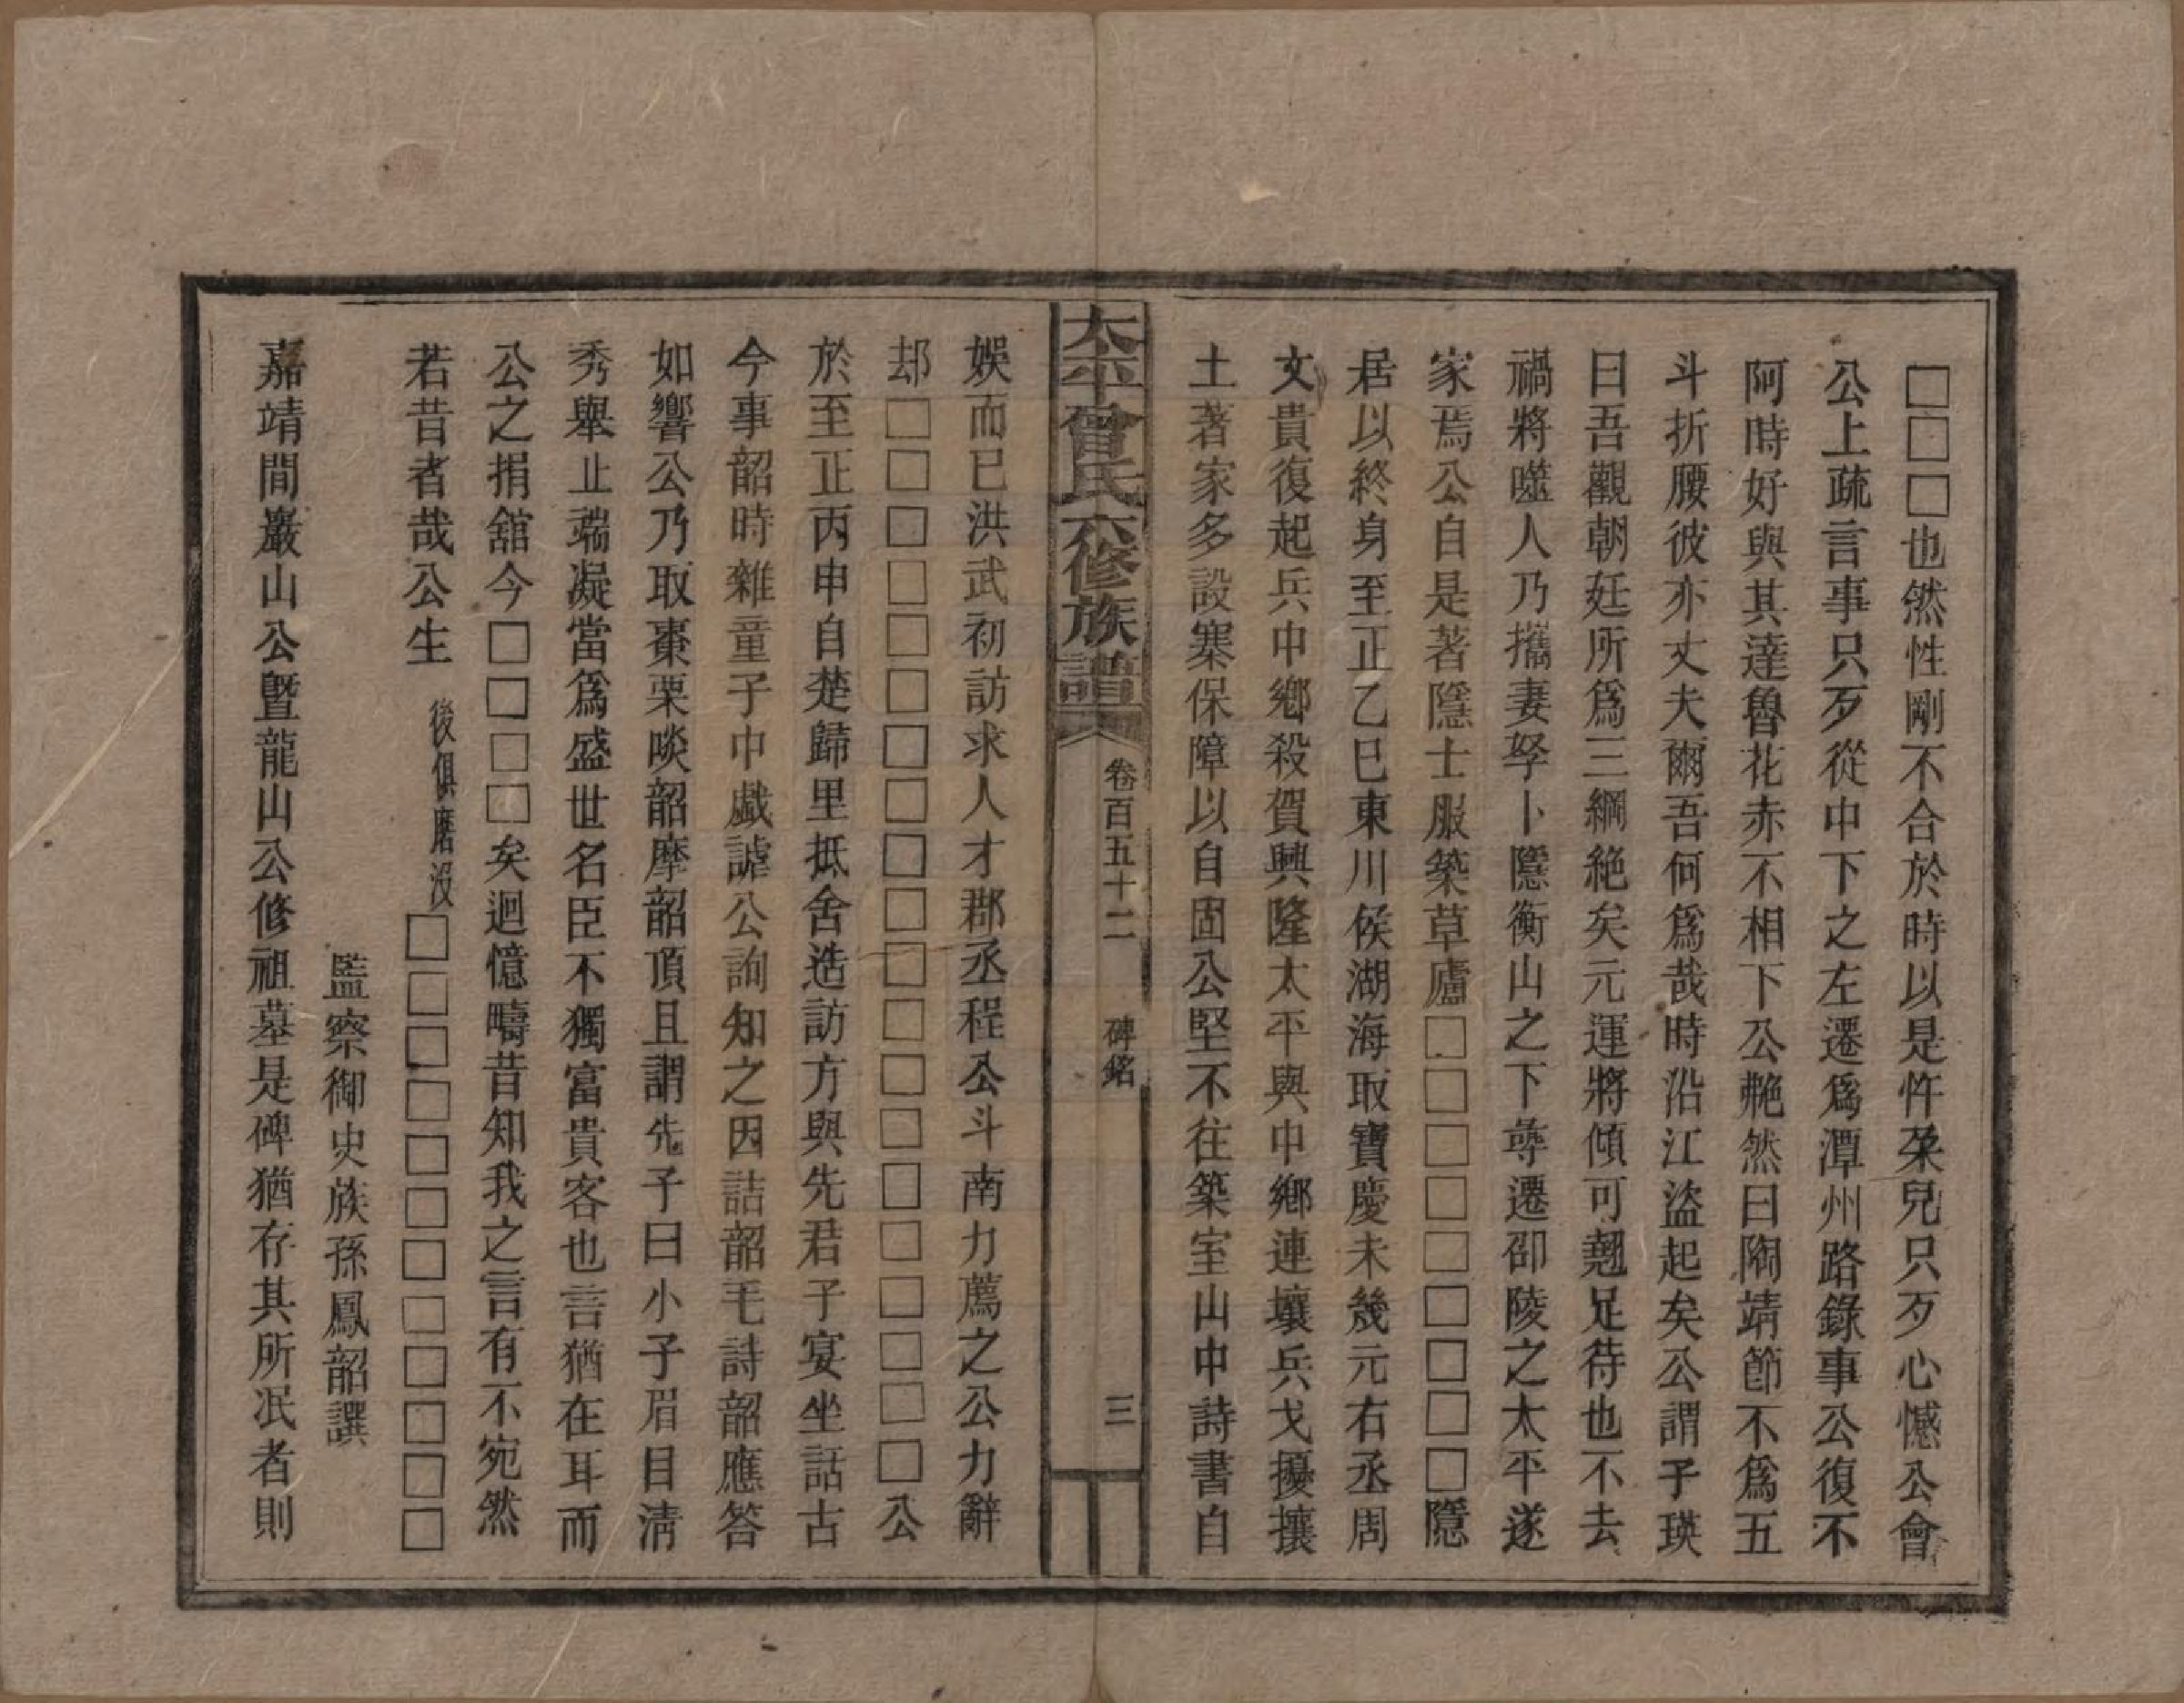 □□□也然性剛不合於時以是忤朶兒只歹心憾公會
公上疏言事只歹從中下之左遷爲潭州路錄事公復不
阿時好與其達魯花赤不相下公艴然曰陶靖節不爲五
斗折腰彼亦丈夫爾吾何爲哉時沿江盜起矣公謂子瑛
曰吾觀朝廷所爲三綱絶矣元運將傾可翹足待也不去
禍將噬人乃攜妻孥卜隱衡山之下尋遷邵陵之太平遂
家焉公自是著隱士服築草廬□□□□□□□□□隱
居以終身至正乙巳東川侯湖海取寶慶未幾元右丞周
文貴復起兵中鄉殺賀興隆太平與中鄉連壤兵戈擾攘
土著家多設寨保障以自固公堅不往築室山中詩書自
太平曾氏六修族譜 卷百五十二 碑銘 三
娛而已洪武初訪求人才郡丞程公斗南力薦之公力辭
却□□□□□□□□□□□□□□□□□□□□公
於至正丙申自楚歸里抵舍造訪方與先君子宴坐話古
今事韶時雜童子中戲謔公詢知之因詰韶毛詩韶應答
如響公乃取棗栗啖韶摩韶頂且謂先子曰小子眉目淸
秀舉止端凝當爲盛世名臣不獨富貴客也言猶在耳而
公之捐舘今□□□□矣迴憶疇昔知我之言有不宛然
若昔者哉公生後俱磨沒□□□□□□□□□□□□
監察御史族孫鳳韶譔
嘉靖間巖山公曁龍山公修祖墓是碑猶存其所泯者則